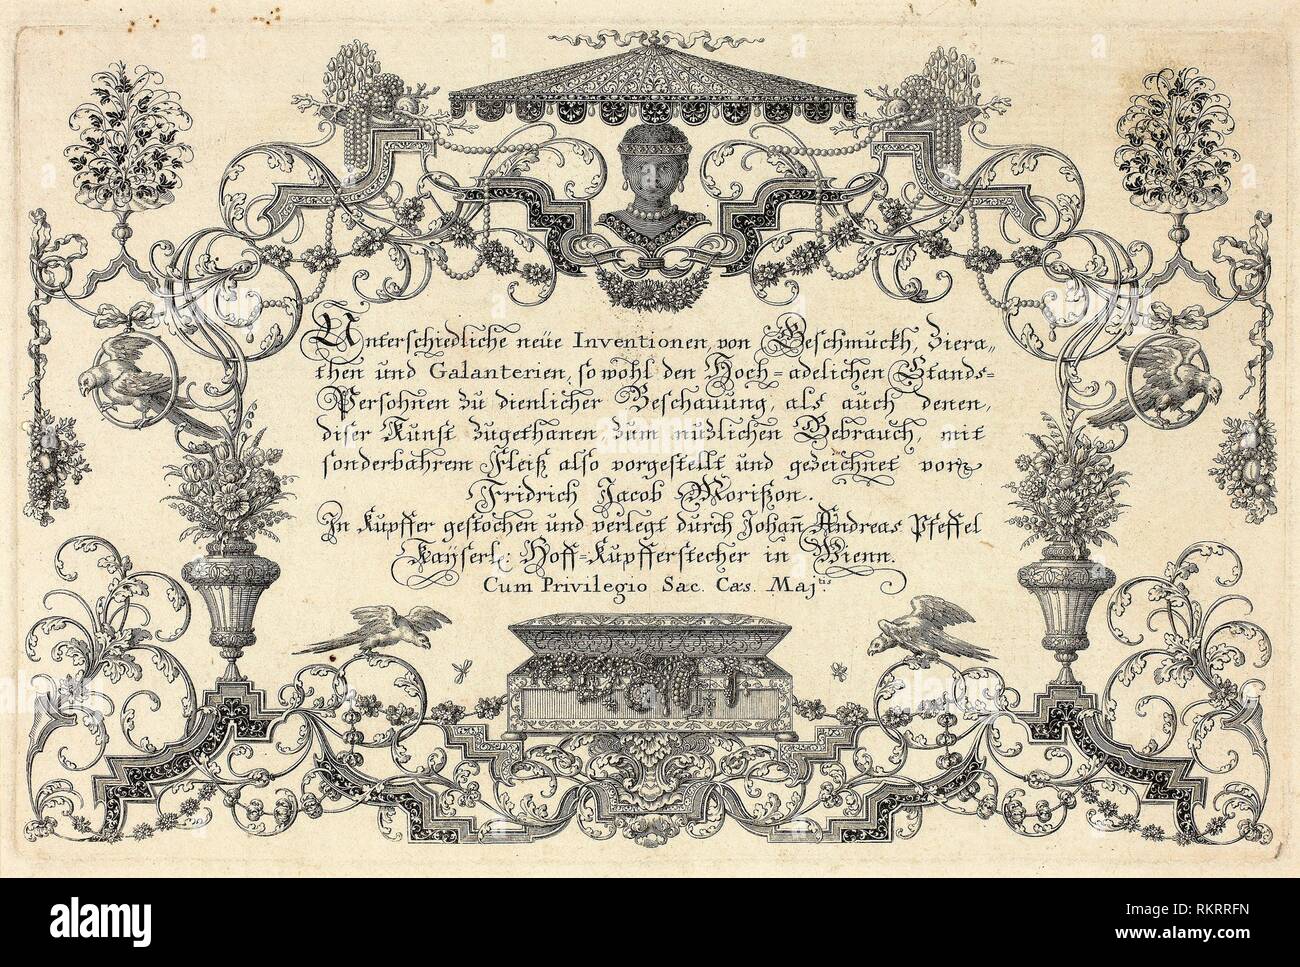 Unterschiedliche neüe Inventionen, von Geschmuckh, Ziera„
then und Galanterien, so wohl den Hoch=adelichen Stands=
Persohnen zu dienlicher Beschauung, als auch denen,
diser Kunst zugethanen, zum nuzlichen Gebrauch, mit
sonderbahrem Fleiß also vorgestellt und gezeichnet von
Fridrich Jacob Morißon.
In Kupffer gestochen und verlegt durch Johañ Andreas Pfeffel
Kaÿserl: Hoff=Kupfferstecher in Wienn.
Cum Privilegio Sac. Cæs. Maj.tis
alamy
Image ID: RKRRFN
www.alamy.com